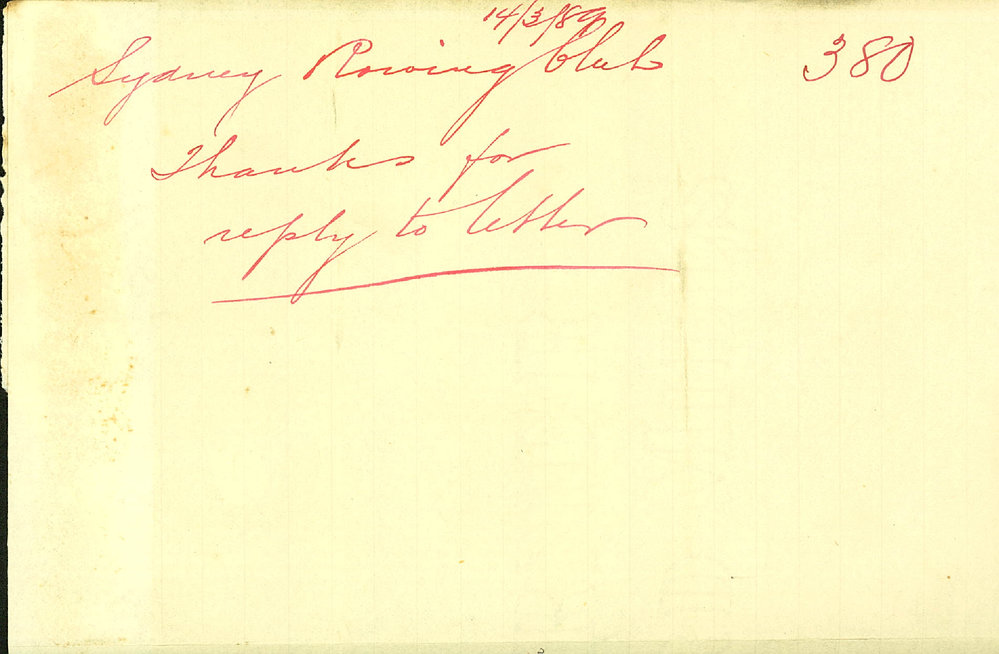 14/3/89
Sydney Rowing Club 380
Thanks for
reply to letter